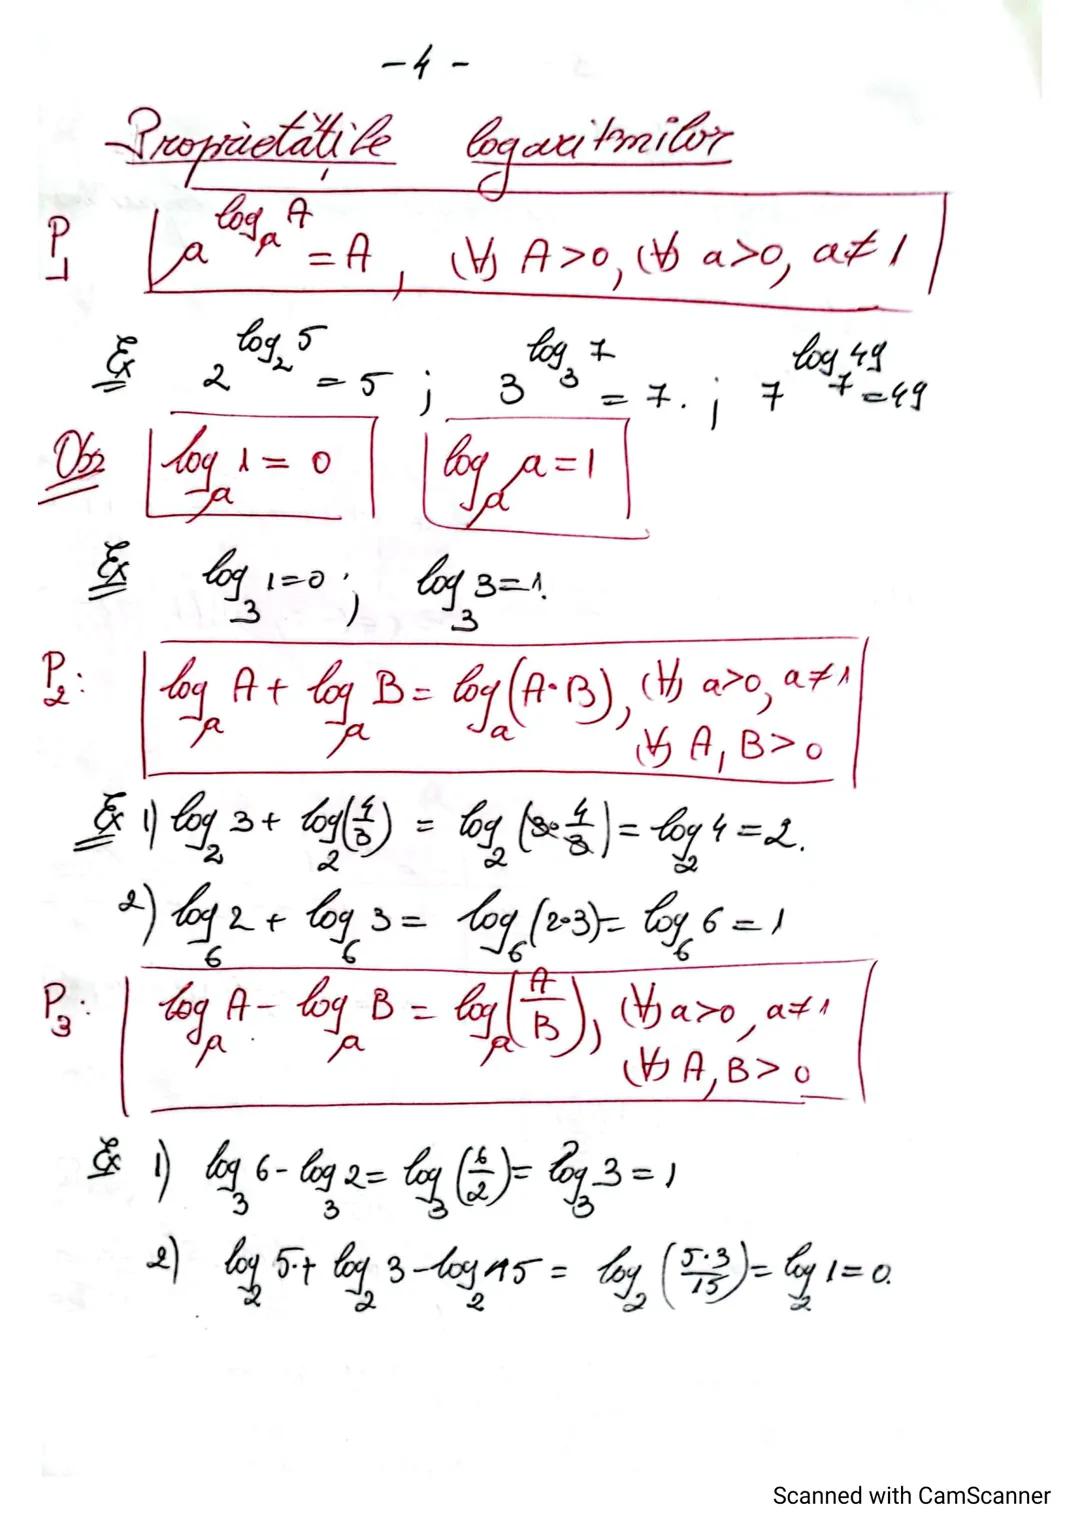 -4-
Proprietățile logaritmilor
P₁ a^(log_a A) = A, (∀) A>0, (∀) a>0, a≠1
Ex 2^(log₂ 5) = 5 ; 3^(log₃ 7) = 7. ; 7^(log₇ 49) = 49
Obs log_a 1 = 0 log_a a = 1
Ex log₃ 1 = 0 ; log₃ 3 = 1.
P₂: log_a A + log_a B = log_a (A·B), (∀) a>0, a≠1
(∀) A, B>0
Ex 1) log₂ 3 + log₂ (4/3) = log₂ (3·4/3) = log₂ 4 = 2.
2) log₆ 2 + log₆ 3 = log₆ (2·3) = log₆ 6 = 1
P₃: log_a A - log_a B = log_a (A/B), (∀) a>0, a≠1
(∀) A, B>0
Ex 1) log₃ 6 - log₃ 2 = log₃ (6/2) = log₃ 3 = 1
2) log₂ 5 + log₂ 3 - log₂ 15 = log₂ (5·3/15) = log₂ 1 = 0.
Scanned with CamScanner